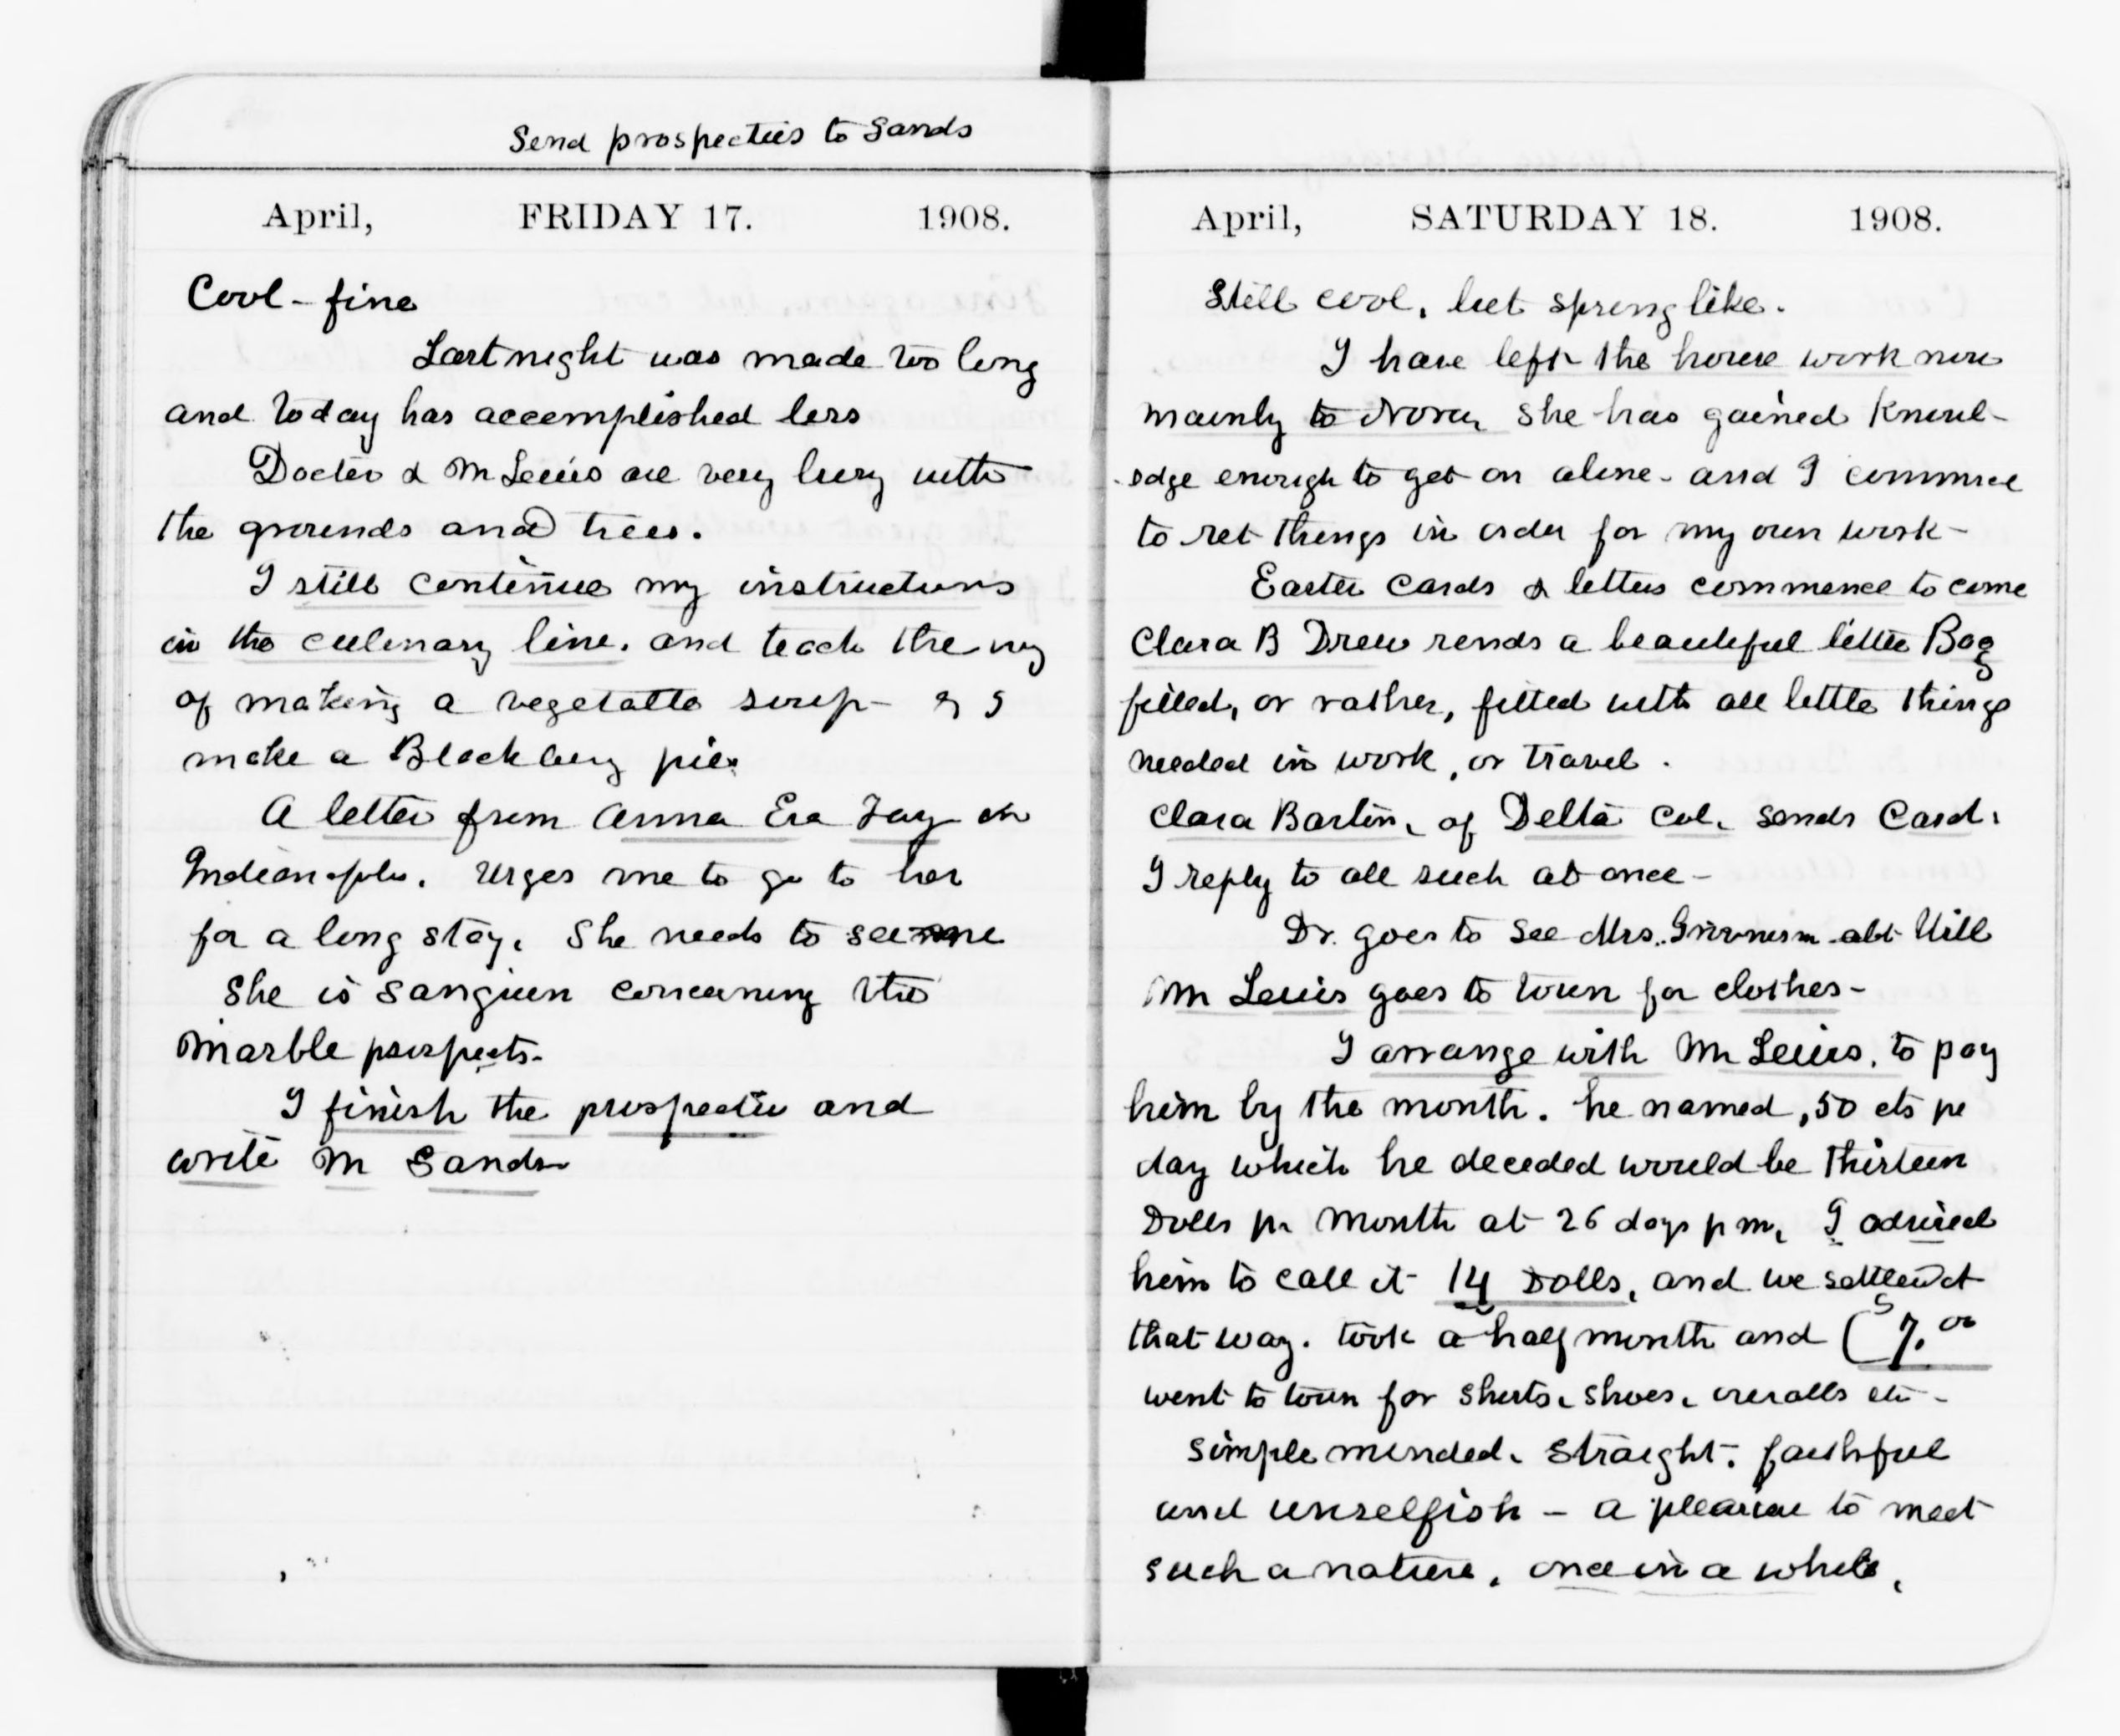 Send prospectus to Sands
April, FRIDAY 17. 1908.
Cool - fine
Last night was made too long
and today has accomplished less
Doctor & Mr Lewis are very busy with
the grounds and trees.
I still continue my instructions
in the culinary line. and teach the way
of making a vegetable soup - & I
make a Blackberry pie.
A letter from Anna Era Fay in
Indianapolis. Urges me to go to her
for a long stay. She needs to see me
She is sanguen concerning the
Marble prospects.
I finish the prospectus and
write Mr Sands
April, SATURDAY 18. 1908.
Still cool, but springlike.
I have left the house work now
mainly to Nora, She has gained Knowl-
edge enough to get on alone - and I commence
to set things in order for my own work -
Easter Cards & letters commence to come
Clara B Drew sends a beautiful little Bag
filled, or rather, fitted with all little things
needed in work, or travel.
Clara Barton, of Delta Col. sends Card.
I reply to all such at once -
Dr. goes to see Mrs. abt Will
Mr Lewis goes to town for clothes -
I arrange with Mr Lewis, to pay
him by the month. he named, 50 cts pe
day which he decided would be thirteen
Dolls pr month at 26 days p m, I advised
him to call it 14 Dolls, and we settled it
that way. took a half month and ($7.00
went to town for shirts, shoes, overalls etc -
simple minded, straight, faithful
and unselfish - a pleasure to meet
such a nature, once in a while,